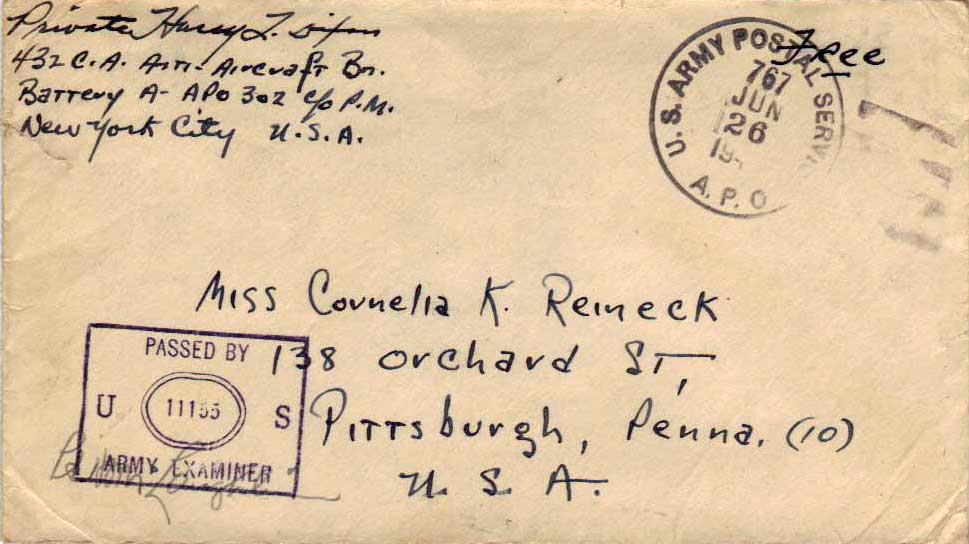 Private Harry L.
432 C.A. Anti-Aircraft Bn.
Battery A- APO 302 c/o P.M.
New York City U.S.A.
Free
U.S. ARMY POSTAL SERVI
767
JUN
26
19
A.P.O
Miss Cornelia K. Reineck
138 Orchard St,
Pittsburgh, Penna. (10)
U. S. A.
PASSED BY
U 11155 S
ARMY EXAMINER